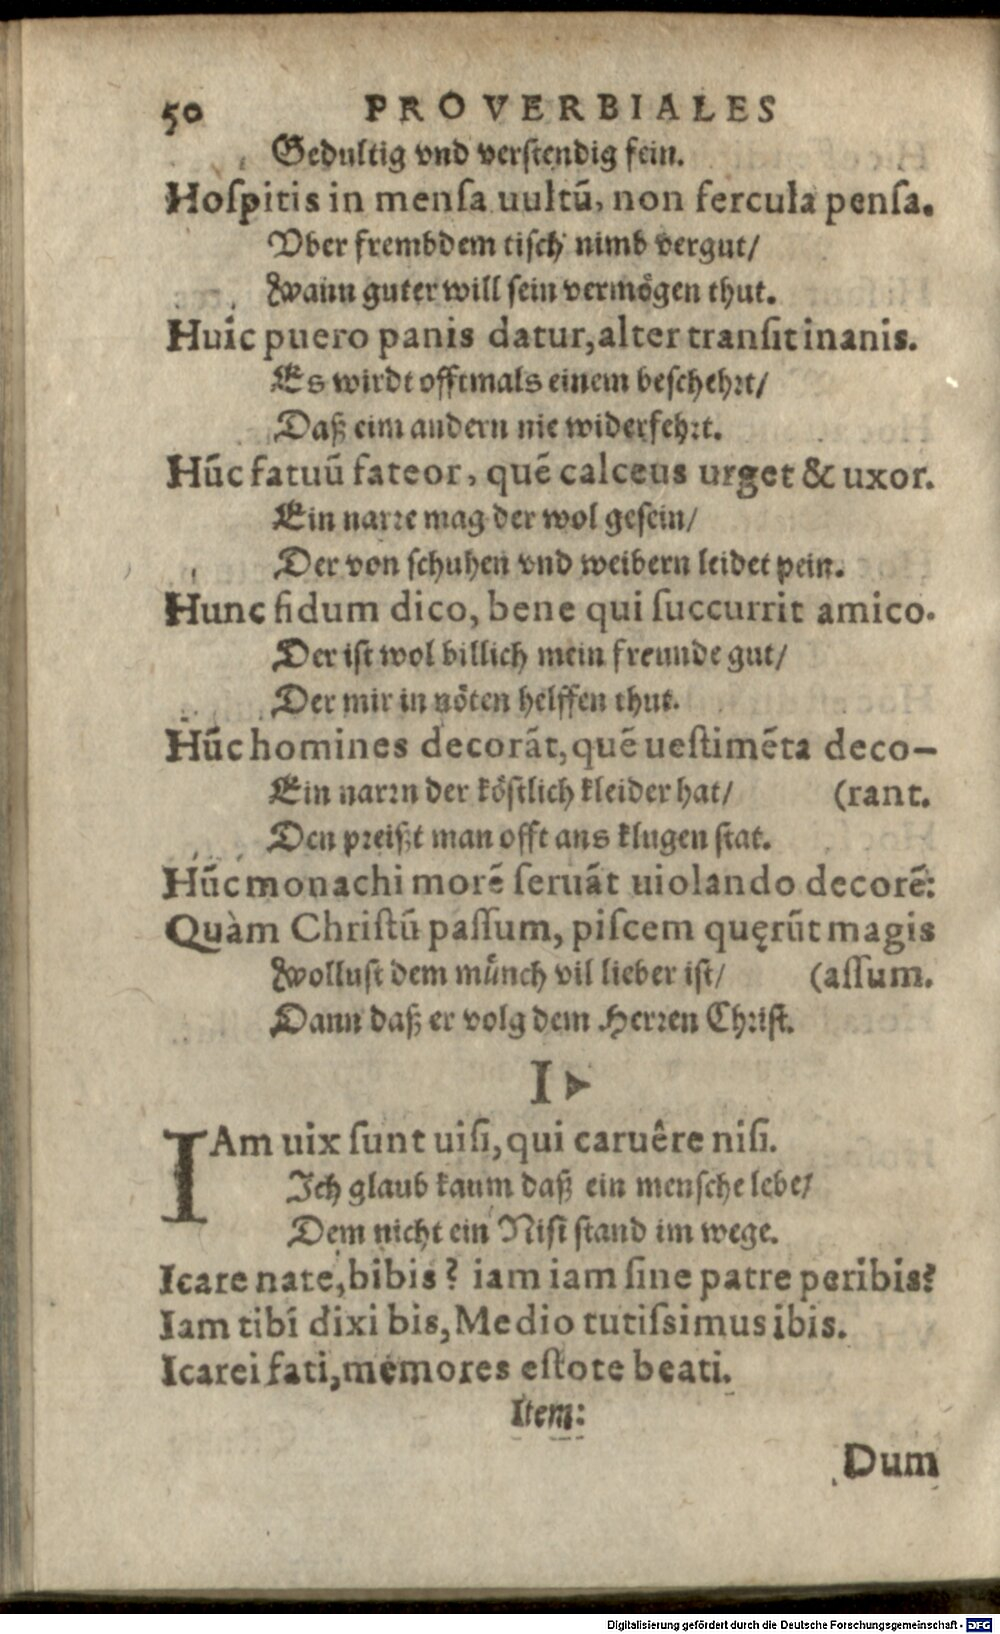 50 PROVERBIALES
Gedultig vnd verstendig fein.
Hoſpitis in menſa uultū, non fercula penſa.
Vber frembdem tisch nimb vergut/
Wann guter will sein vermögen thut.
Huic puero panis datur, alter tranſit inanis.
Es wirdt offtmals einem beschehrt/
Daß eim andern nie widerfehrt.
Hūc fatuū fateor, quē calceus urget & uxor.
Ein narre mag der wol gesein/
Der von schuhen vnd weibern leidet pein.
Hunc fidum dico, bene qui ſuccurrit amico.
Der ist wol billich mein freunde gut/
Der mir in nöten helffen thut.
Hūc homines decorāt, quē ueſtimēta deco-
Ein narrn der köstlich kleider hat/ (rant.
Den preißt man offt ans klugen stat.
Hūc monachi morē ſeruāt uiolando decorē:
Quàm Chriſtū paſſum, piſcem quęrūt magis
Wollust dem münch vil lieber ist/ (aſſum.
Dann daß er volg dem Herren Christ.
I
IAm uix ſunt uiſi, qui caruêre niſi.
Ich glaub kaum daß ein mensche lebe/
Dem nicht ein Nisi stand im wege.
Icare nate, bibis? iam iam ſine patre peribis?
Iam tibi dixi bis, Medio tutiſsimus ibis.
Icarei fati, memores eſtote beati.
Item:
Dum
Digitalisierung gefördert durch die Deutsche Forschungsgemeinschaft - DFG